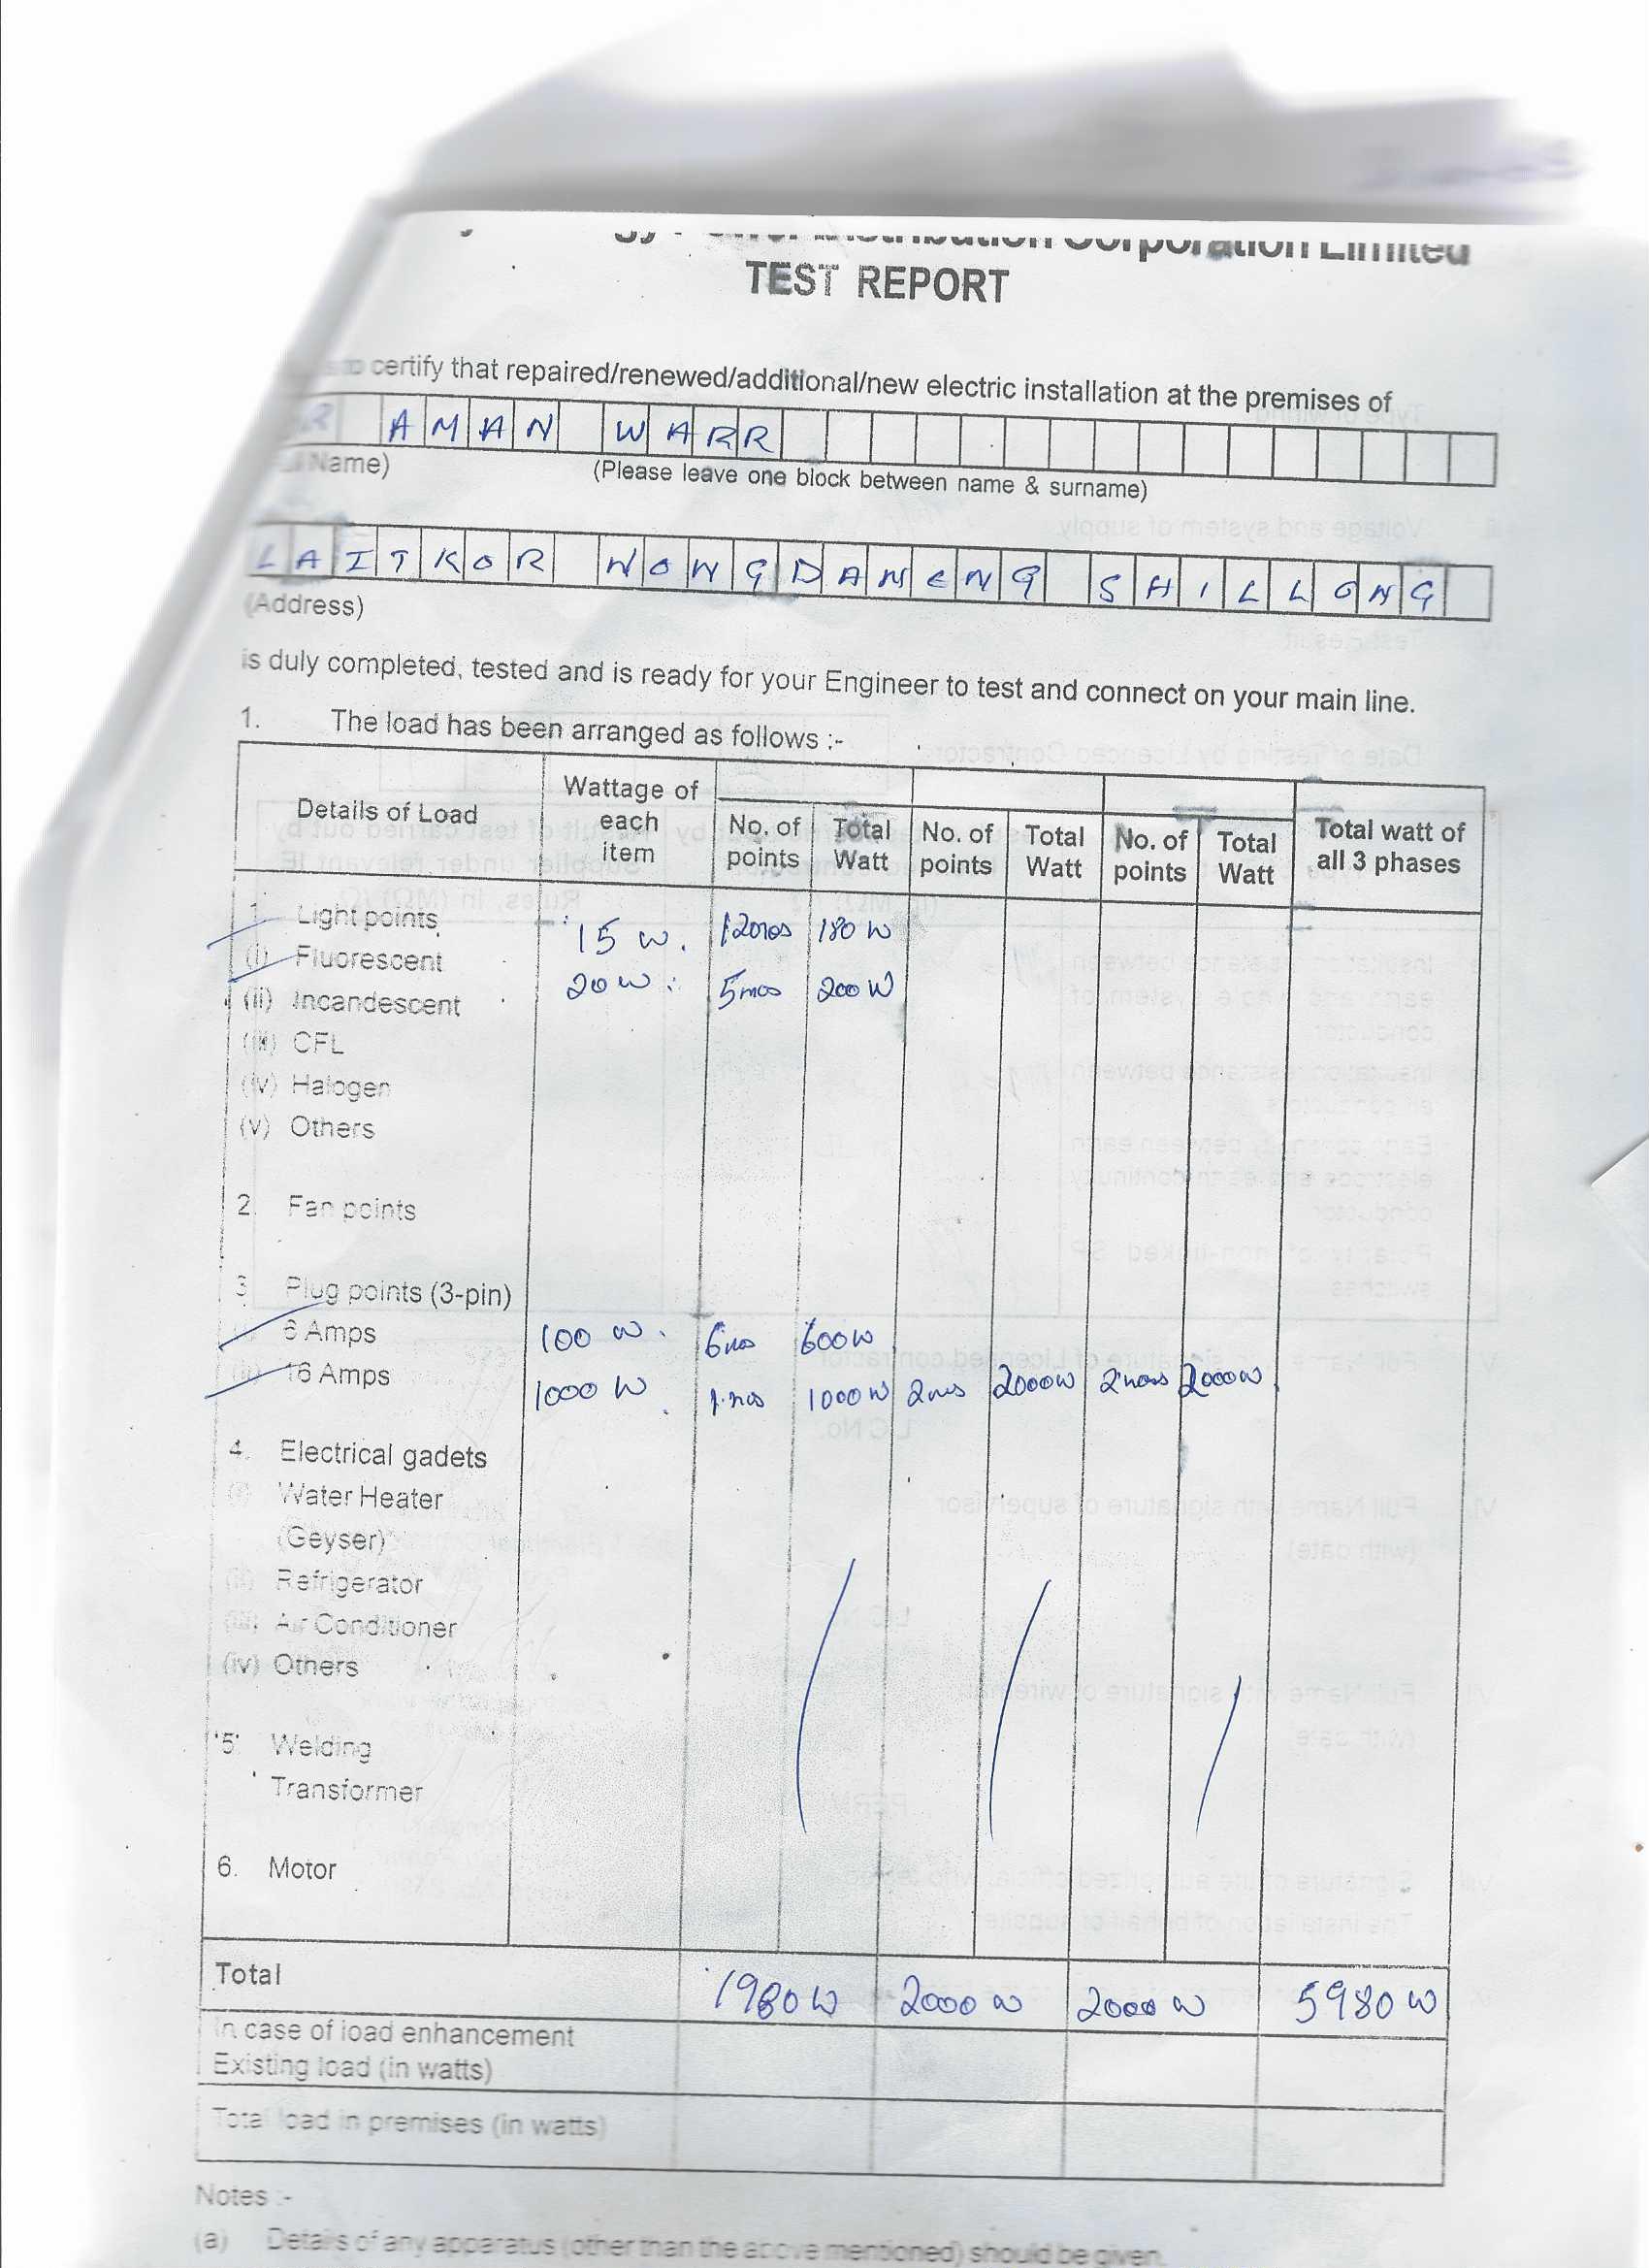 Distribution Corporation Limited
TEST REPORT
certify that repaired/renewed/additional/new electric installation at the premises of
R AMAN WARR
Name)
(Please leave one block between name & surname)
LAITKOR NONGDANENG SHILLONG
(Address)
is duly completed, tested and is ready for your Engineer to test and connect on your main line.
1. The load has been arranged as follows :-
Details of Load Wattage of each item No. of points Total Watt No. of points Total Watt No. of points Total Watt Total watt of all 3 phases
1. Light points
(i) Fluorescent 15 W. 12nos 180 W
(ii) Incandescent 20 W 5nos 200 W
(iii) CFL
(iv) Halogen
(v) Others
2. Fan points
3. Plug points (3-pin)
(i) 6 Amps 100 W. 6nos 600W
(ii) 16 Amps 1000 W. 1.nos 1000 W 2nos 2000W 2nos 2000W
4. Electrical gadets
(i) Water Heater
(Geyser)
(ii) Refrigerator
(iii) Air Conditioner
(iv) Others
5. Welding
Transformer
6. Motor
Total 1980 W 2000 W 2000 W 5980 W
In case of load enhancement
Existing load (in watts)
Total load in premises (in watts)
Notes :-
(a) Details of any apparatus (other than the above mentioned) should be given.